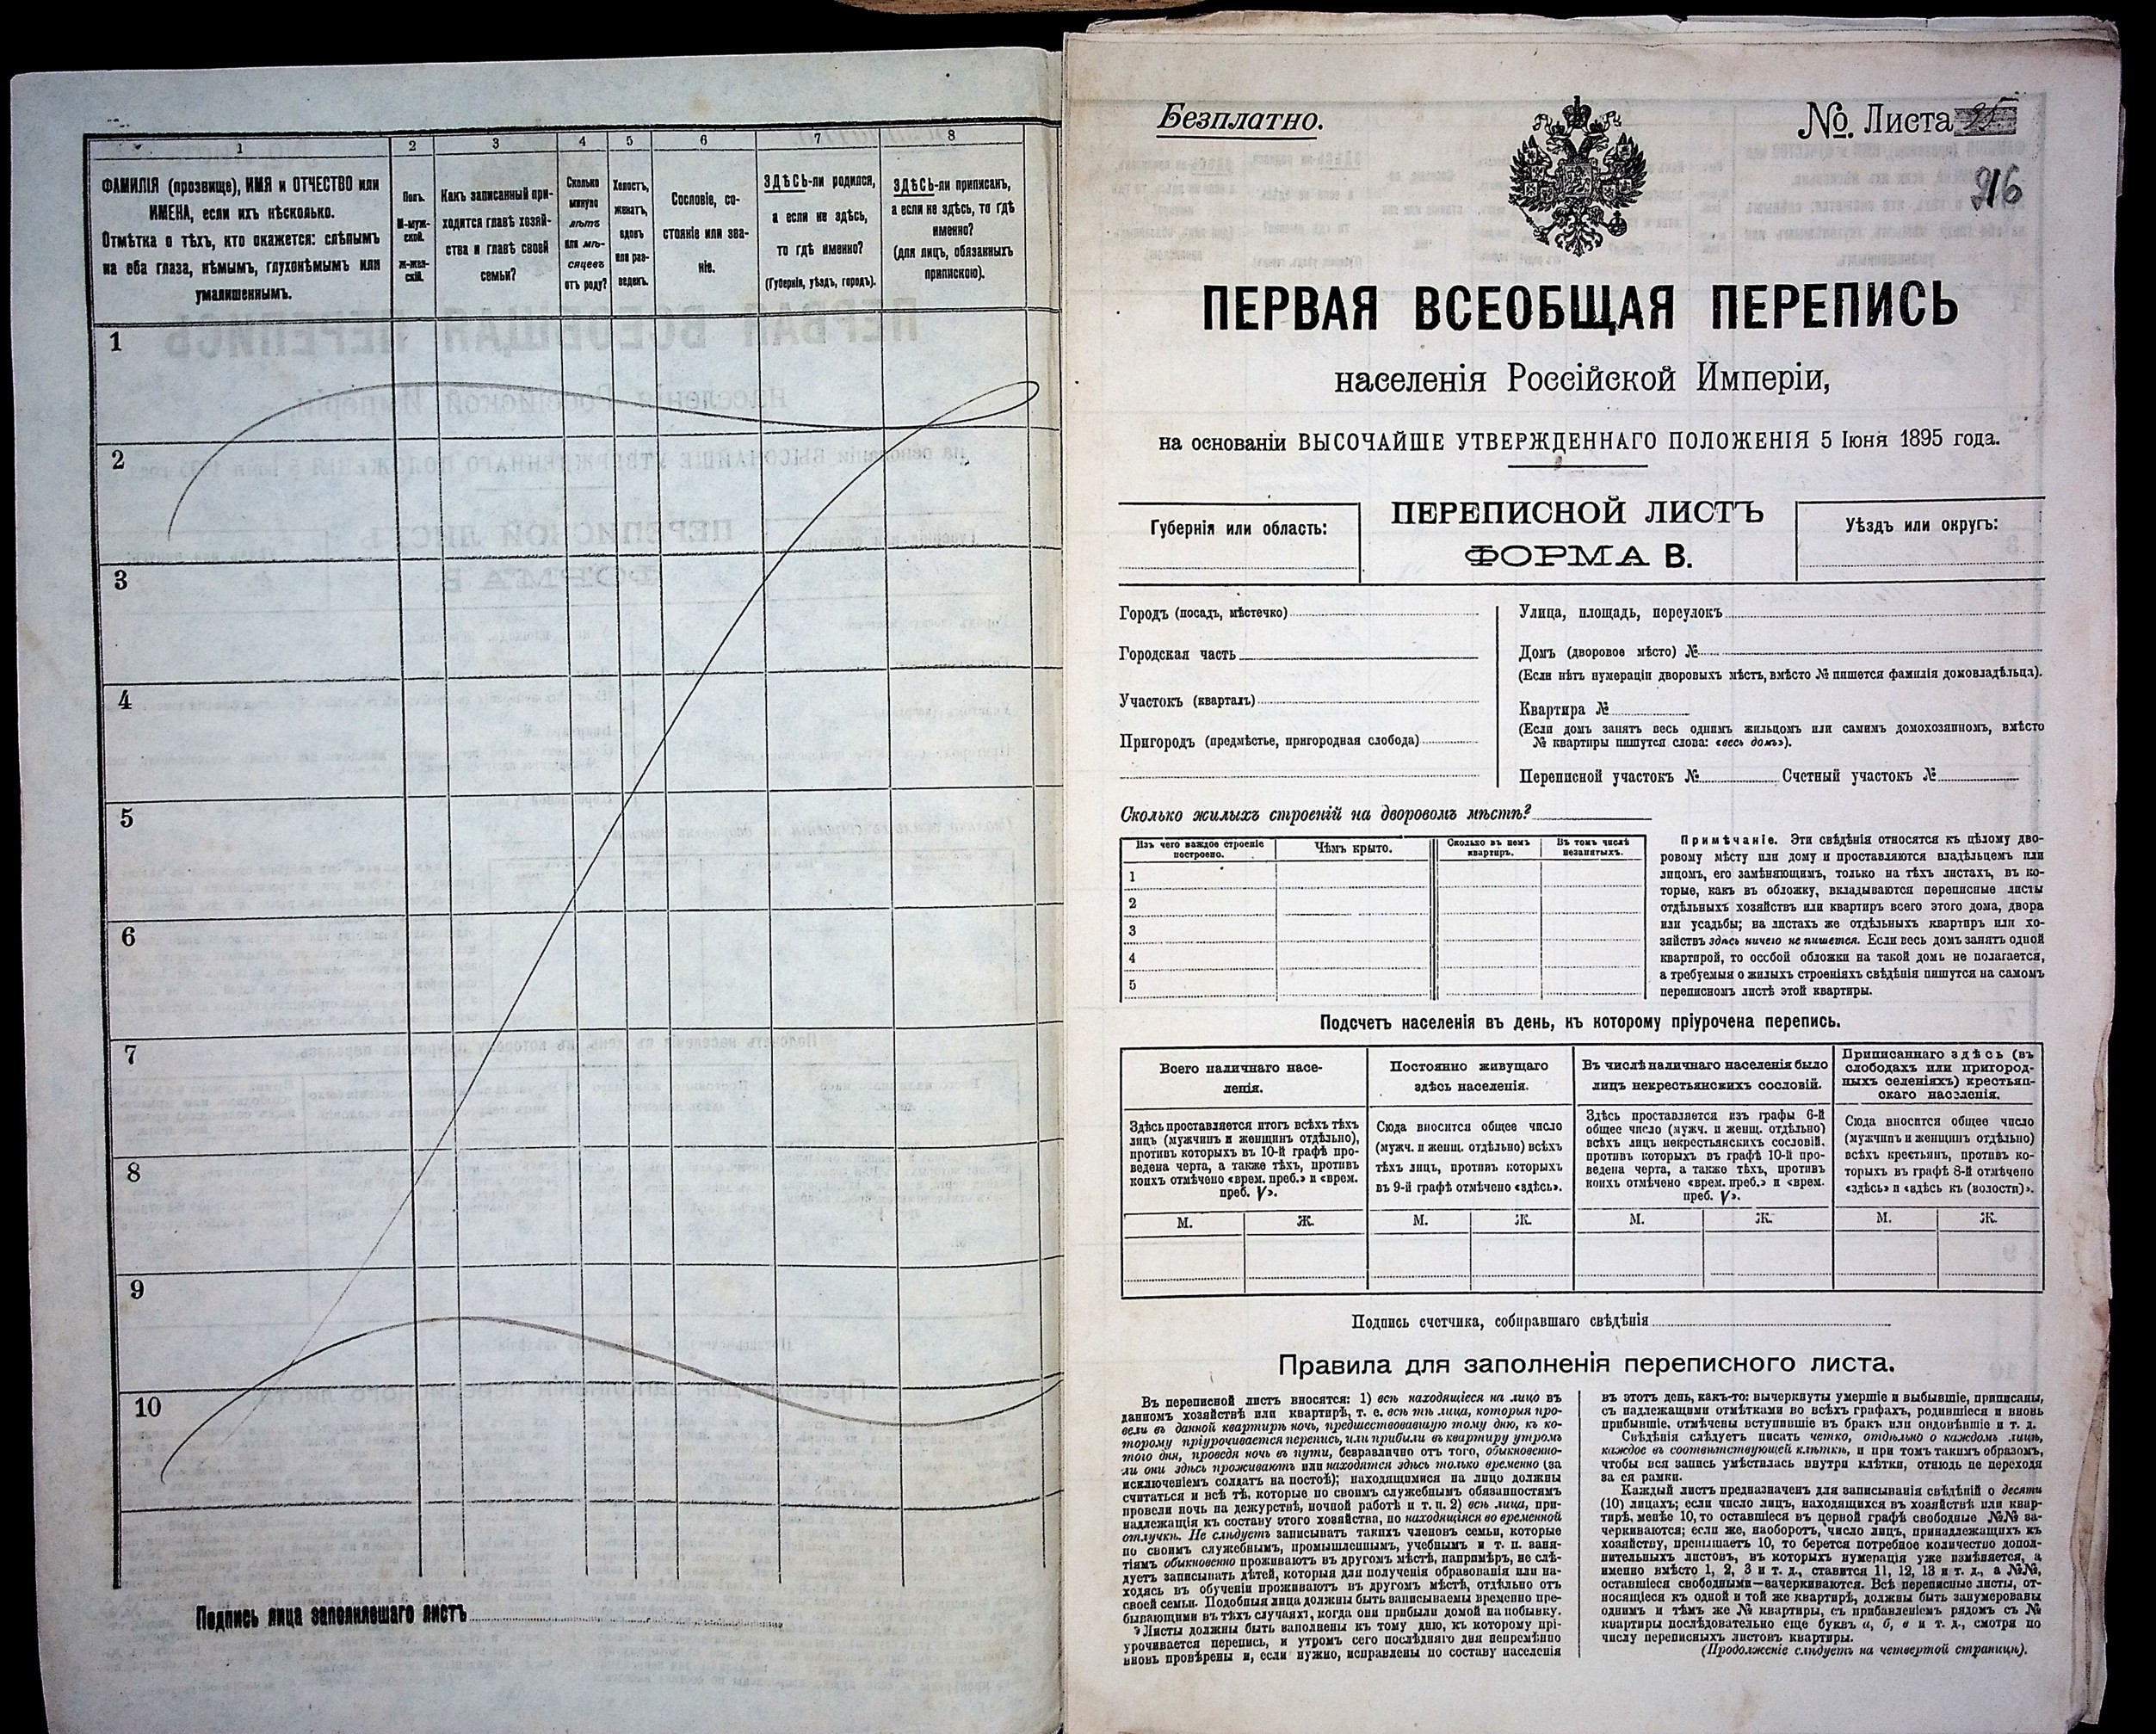 1 2 3 4 5 6 7 8
ФАМИЛІЯ (прозвище), ИМЯ и ОТЧЕСТВО или
ИМЕНА, если ихъ нѣсколько.
Отмѣтка о тѣхъ, кто окажется: слѣпымъ
на оба глаза, нѣмымъ, глухонѣмымъ или
умалишеннымъ.
Полъ.
М-муж-
ской.
Ж-жен-
скій.
Какъ записанный при-
ходится главѣ хозяй-
ства и главѣ своей
семьи?
Сколько
минуло
лѣтъ
или мѣ-
сяцевъ
отъ роду?
Холостъ,
женатъ,
вдовъ
или раз-
веденъ.
Сословіе, со-
стояніе или зва-
ніе.
ЗДѢСЬ-ли родился,
а если не здѣсь,
то гдѣ именно?
(Губернія, уѣздъ, городъ).
ЗДѢСЬ-ли приписанъ,
а если не здѣсь, то гдѣ
именно?
(для лицъ, обязанныхъ
припискою).
1
2
3
4
5
6
7
8
9
10
Подпись лица заполнявшаго листъ
Безплатно.
№. Листа 95
96
ПЕРВАЯ ВСЕОБЩАЯ ПЕРЕПИСЬ
населенія Россійской Имперіи,
на основаніи ВЫСОЧАЙШЕ УТВЕРЖДЕННАГО ПОЛОЖЕНІЯ 5 Іюня 1895 года.
Губернія или область:
ПЕРЕПИСНОЙ ЛИСТЪ
ФОРМА В.
Уѣздъ или округъ:
Городъ (посадъ, мѣстечко)
Городская часть
Участокъ (кварталъ)
Пригородъ (предмѣстье, пригородная слобода)
Улица, площадь, переулокъ
Домъ (дворовое мѣсто) №
(Если нѣтъ нумераціи дворовыхъ мѣстъ, вмѣсто № пишется фамилія домовладѣльца).
Квартира №
(Если домъ занятъ весь однимъ жильцомъ или самимъ домохозяиномъ, вмѣсто
№ квартиры пишутся слова: «весь домъ»).
Переписной участокъ № Счетный участокъ №
Сколько жилыхъ строеній на дворовомъ мѣстѣ?
Изъ чего каждое строеніе
построено.
Чѣмъ крыто.
Сколько въ немъ
квартиръ.
Въ томъ числѣ
незанятыхъ.
1
2
3
4
5
Примѣчаніе. Эти свѣдѣнія относятся къ цѣлому дво-
ровому мѣсту или дому и проставляются владѣльцемъ или
лицомъ, его замѣняющимъ, только на тѣхъ листахъ, въ ко-
торые, какъ въ обложку, вкладываются переписные листы
отдѣльныхъ хозяйствъ или квартиръ всего этого дома, двора
или усадьбы; на листахъ же отдѣльныхъ квартиръ или хо-
зяйствъ здѣсь ничего не пишется. Если весь домъ занятъ одной
квартирой, то особой обложки на такой домъ не полагается,
а требуемыя о жилыхъ строеніяхъ свѣдѣнія пишутся на самомъ
переписномъ листѣ этой квартиры.
Подсчетъ населенія въ день, къ которому пріурочена перепись.
Всего наличнаго насе-
ленія.
Постоянно живущаго
здѣсь населенія.
Въ числѣ наличнаго населенія было
лицъ некрестьянскихъ сословій.
Приписаннаго здѣсь (въ
слободахъ или пригород-
ныхъ селеніяхъ) крестьян-
скаго населенія.
Здѣсь проставляется итогъ всѣхъ тѣхъ
лицъ (мужчинъ и женщинъ отдѣльно),
противъ которыхъ въ 10-й графѣ про-
ведена черта, а также тѣхъ, противъ
коихъ отмѣчено «врем. преб.» и «врем.
преб. V».
Сюда вносится общее число
(мужч. и женщ. отдѣльно) всѣхъ
тѣхъ лицъ, противъ которыхъ
въ 9-й графѣ отмѣчено «здѣсь».
Здѣсь проставляется изъ графы 6-й
общее число (мужч. и женщ. отдѣльно)
всѣхъ лицъ некрестьянскихъ сословій,
противъ которыхъ въ графѣ 10-й про-
ведена черта, а также тѣхъ, противъ
коихъ отмѣчено «врем. преб.» и «врем.
преб. V».
Сюда вносится общее число
(мужчинъ и женщинъ отдѣльно)
всѣхъ крестьянъ, противъ ко-
торыхъ въ графѣ 8-й отмѣчено
«здѣсь» и «здѣсь къ (волости)».
М. Ж. М. Ж. М. Ж. М. Ж.
Подпись счетчика, собиравшаго свѣдѣнія
Правила для заполненія переписного листа.
Въ переписной листъ вносятся: 1) всѣ находящіеся на лицо въ
данномъ хозяйствѣ или квартирѣ, т. е. всѣ тѣ лица, которыя про-
вели въ данной квартирѣ ночь, предшествовавшую тому дню, къ ко-
торому пріурочивается перепись, или прибыли въ квартиру утромъ
того дня, проведя ночь въ пути, безразлично отъ того, обыкновенно-
ли они здѣсь проживаютъ или находятся здѣсь только временно (за
исключеніемъ солдатъ на постоѣ); находящимися на лицо должны
считаться и всѣ тѣ, которые по своимъ служебнымъ обязанностямъ
провели ночь на дежурствѣ, ночной работѣ и т. п. 2) всѣ лица, при-
надлежащія къ составу этого хозяйства, но находящіяся во временной
отлучкѣ. Не слѣдуетъ записывать такихъ членовъ семьи, которые
по своимъ служебнымъ, промышленнымъ, учебнымъ и т. п. заня-
тіямъ обыкновенно проживаютъ въ другомъ мѣстѣ, напримѣръ, не слѣ-
дуетъ записывать дѣтей, которыя для полученія образованія или на-
ходясь въ обученіи проживаютъ въ другомъ мѣстѣ, отдѣльно отъ
своей семьи. Подобныя лица должны быть записываемы временно пре-
бывающими въ тѣхъ случаяхъ, когда они прибыли домой на побывку.
Листы должны быть заполнены къ тому дню, къ которому прі-
урочивается перепись, и утромъ сего послѣдняго дня непремѣнно
вновь провѣрены и, если нужно, исправлены по составу населенія
въ этотъ день, какъ-то: вычеркнуты умершіе и выбывшіе, приписаны,
съ надлежащими отмѣтками во всѣхъ графахъ, родившіеся и вновь
прибывшіе, отмѣчены вступившіе въ бракъ или овдовѣвшіе и т. д.
Свѣдѣнія слѣдуетъ писать четко, отдѣльно о каждомъ лицѣ,
каждое въ соотвѣтствующей клѣткѣ, и при томъ такимъ образомъ,
чтобы вся запись умѣстилась внутри клѣтки, отнюдь не переходя
за ея рамки.
Каждый листъ предназначенъ для записыванія свѣдѣній о десяти
(10) лицахъ; если число лицъ, находящихся въ хозяйствѣ или квар-
тирѣ, менѣе 10, то оставшіеся въ первой графѣ свободные №№ за-
черкиваются; если же, наоборотъ, число лицъ, принадлежащихъ къ
хозяйству, превышаетъ 10, то берется потребное количество допол-
нительныхъ листовъ, въ которыхъ нумерація уже измѣняется, а
именно вмѣсто 1, 2, 3 и т. д., ставится 11, 12, 13 и т. д., а №№,
оставшіеся свободными—зачеркиваются. Всѣ переписные листы, от-
носящіеся къ одной и той же квартирѣ, должны быть занумерованы
однимъ и тѣмъ же № квартиры, съ прибавленіемъ рядомъ съ №
квартиры послѣдовательно еще буквъ а, б, в и т. д., смотря по
числу переписныхъ листовъ квартиры.
(Продолженіе слѣдуетъ на четвертой страницѣ).